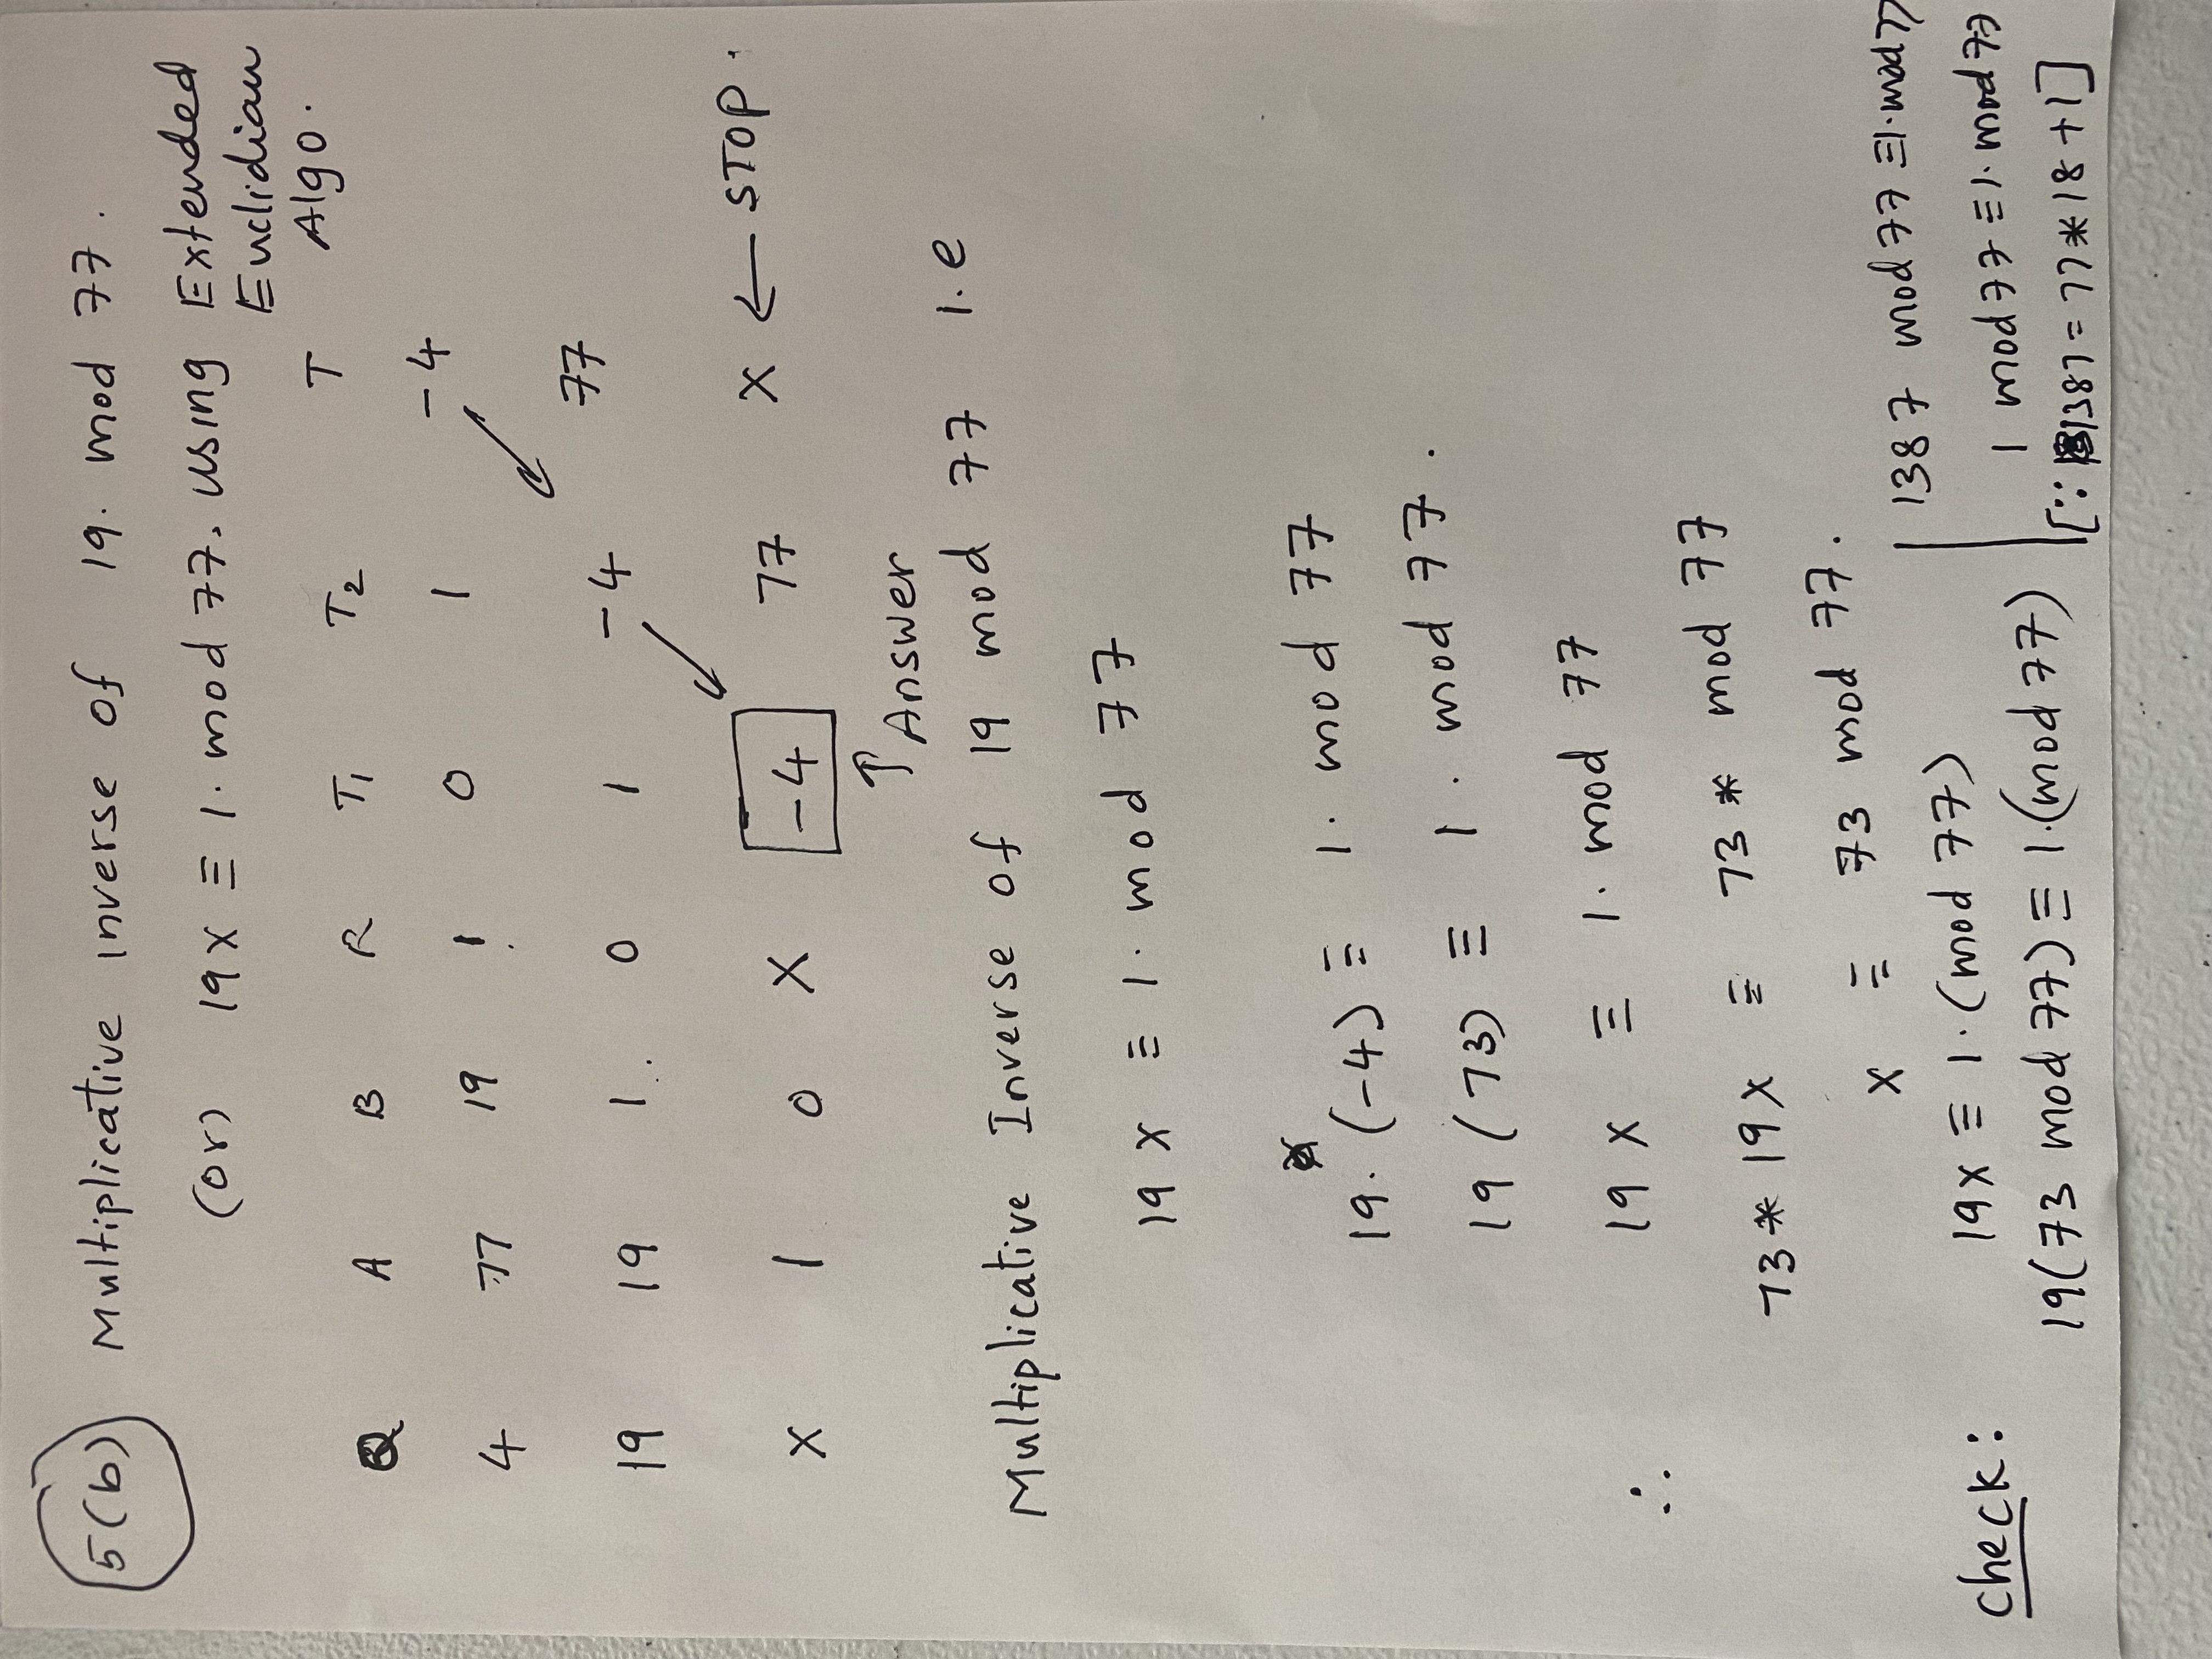 5(b) Multiplicative inverse of 19. mod 77.
(or) 19x ≡ 1. mod 77, using Extended
Euclidian
Algo.
Q A B R T1 T2 T
4 77 19 1 0 1 -4
19 19 1 0 1 -4 77
X 1 0 X -4 77 X ← STOP.
↑ Answer
Multiplicative Inverse of 19 mod 77 i.e
19x ≡ 1. mod 77
19. (-4) ≡ 1. mod 77
19 (73) ≡ 1. mod 77.
∴ 19x ≡ 1. mod 77
73* 19x ≡ 73* mod 77
x ≡ 73 mod 77.
check: 19x ≡ 1.(mod 77)
19(73 mod 77) ≡ 1.(mod 77)
1387 mod 77 ≡ 1. mod 77
1 mod 77 ≡ 1. mod 77
[∵ 1387 = 77*18+1]